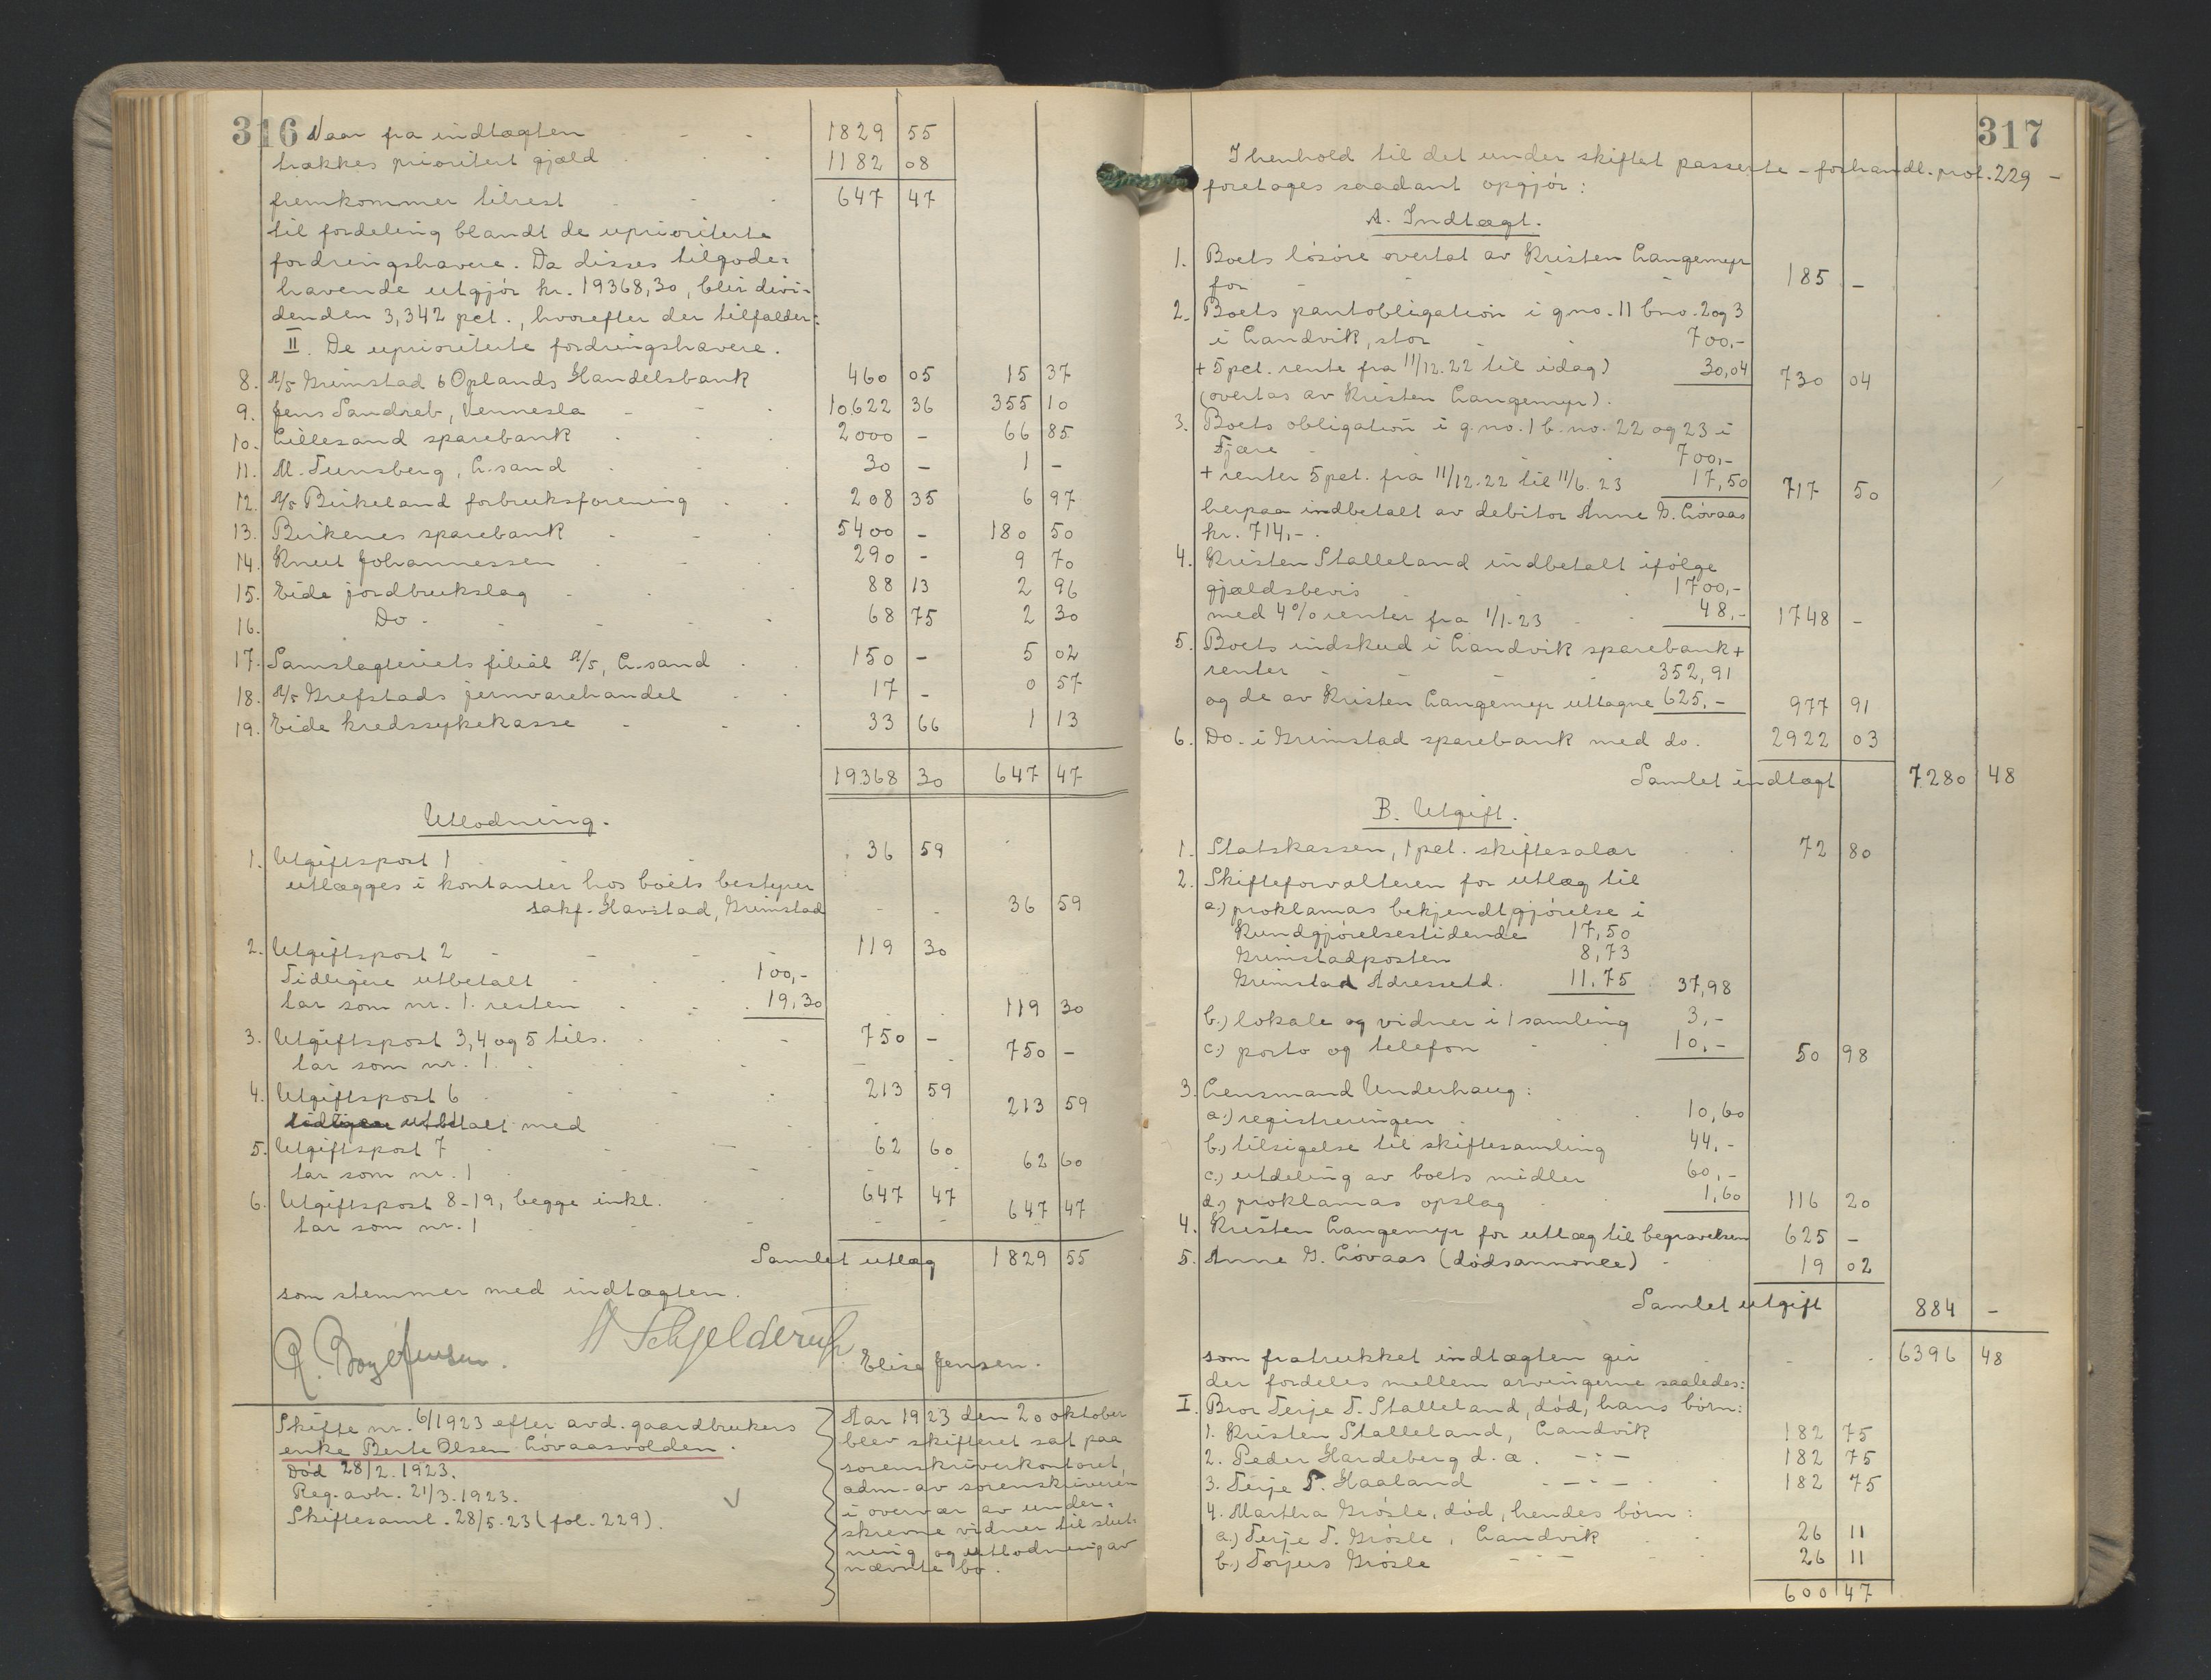 316 Naar fra indtægten - - 1829 55
trækkes prioritert gjæld 1182 08
fremkommer tilrest 647 47
til fordeling blandt de uprioriterte
fordringshavere. Da disses tilgode=
havende utgjör kr. 19368,30, blir divi=
denden 3,342 pct., hvorefter der tilfalder:
II. De uprioriterte fordringshavere.
8. A/S Grimstad & Oplands Handelsbank 460 05 15 37
9. Jens Sandreb, Vennesla 10622 36 355 10
10. Lillesand sparebank 2000 - 66 85
11. M. Tunsberg, L.sand 30 - 1 -
12. A/S Birkeland forbruksforening 208 35 6 97
13. Birkenes sparebank 5400 - 180 50
14. Knut Johannessen 290 - 9 70
15. Eide jordbrukslag 88 13 2 96
16. Do - 68 75 2 30
17. Samslagteriets filial A/S, L.sand 150 - 5 02
18. A/S Grefstads jernvarehandel 17 - 0 57
19. Eide kredssykekasse 33 66 1 13
19368 30 647 47
Utlodning.
1. Utgiftspost 1 36 59
utlægges i kontanter hos boets bestyrer
sakf. Havstad, Grimstad - - 36 59
2. Utgiftspost 2 119 30
Tidligere utbetalt 100,-
tar som nr. 1 resten 19,30 119 30
3. Utgiftspost 3, 4 og 5 tils. 750 -
tar som nr. 1. 750 -
4. Utgiftspost 6 213 59
tidligere utbetalt med 213 59
5. Utgiftspost 7 62 60
tar som nr. 1 62 60
6. Utgiftspost 8-19, begge inkl. 647 47
tar som nr. 1 647 47
Samlet utlæg 1829 55
som stemmer med indtægten.
Schjelderup
Elise Jensen.
Skifte nr. 6/1923 efter avd. gaardbrukers
enke Berte Olsen Lövaasvolden.
Död 28/2. 1923.
Reg. avh. 21/3. 1923.
Skiftesaml. 28/5. 23 (fol. 229).
Aar 1923 den 20 oktober
blev skifteret sat paa
sorenskriverkontoret,
adm. av sorenskriveren
i overvær av under=
skrevne vidner til slut=
ning og utlodning av
nævnte bo.
317
I henhold til det under skiftet passerte - forhandl. prot. 229 -
foretages saadant opgjör:
A. Indtægt.
1. Boets lösöre overtat av Kristen Langemyr
for - - - 185 -
2. Boets pantobligation i g.no. 11 b.no. 2 og 3
i Landvik, stor 700,-
+ 5 pct. rente fra 11/12. 22 til idag) 30,04 730 04
(overtas av Kristen Langemyr).
3. Boets obligation i g.no. 1 b.no. 22 og 23 i
Fjære 700,-
+ renter 5 pct. fra 11/12. 22 til 11/6. 23 17,50 717 50
herpaa indbetalt av debitor Anne G. Lövaas
kr. 714,-.
4. Kristen Stalleland indbetalt ifölge
gjældsbevis 1700,-
med 4% renter fra 1/1. 23 48,- 1748 -
5. Boets indskud i Landvik sparebank +
renter 352,91
og de av Kristen Langemyr uttagne 625,- 977 91
6. Do. i Grimstad sparebank med do. 2922 03
Samlet indtægt 7280 48
B. Utgift.
1. Statskassen, 1 pct. skiftesalær 72 80
2. Skifteforvalteren for utlæg til
a.) proklamas bekjendtgjörelse i
Kundgjörelsestidende 17,50
Grimstadposten 8,73
Grimstad Adressetd. 11,75 37,98
b.) lokale og vidner i 1 samling 3,-
c.) porto og telefon 10,- 50 98
3. Lensmand Underhaug:
a.) registreringen 10,60
b.) tilsigelse til skiftesamling 44,-
c.) utdeling av boets midler 60,-
d.) proklamas opslag 1,60 116 20
4. Kristen Langemyr for utlæg til begravelsen 625 -
5. Anne G. Lövaas (dödsannonce) 19 02
Samlet utgift 884 -
som fratrukket indtægten gir 6396 48
der fordeles mellem arvingerne saaledes:
I. Bror Terje T. Stalleland, död, hans börn:
1. Kristen Stalleland, Landvik 182 75
2. Peder Hardeberg d.æ. -:- 182 75
3. Terje T. Haaland -:- 182 75
4. Martha Grösle, död, hendes börn:
a.) Terje T. Grösle, Landvik 26 11
b.) Torjus Grösle -:- 26 11
600 47